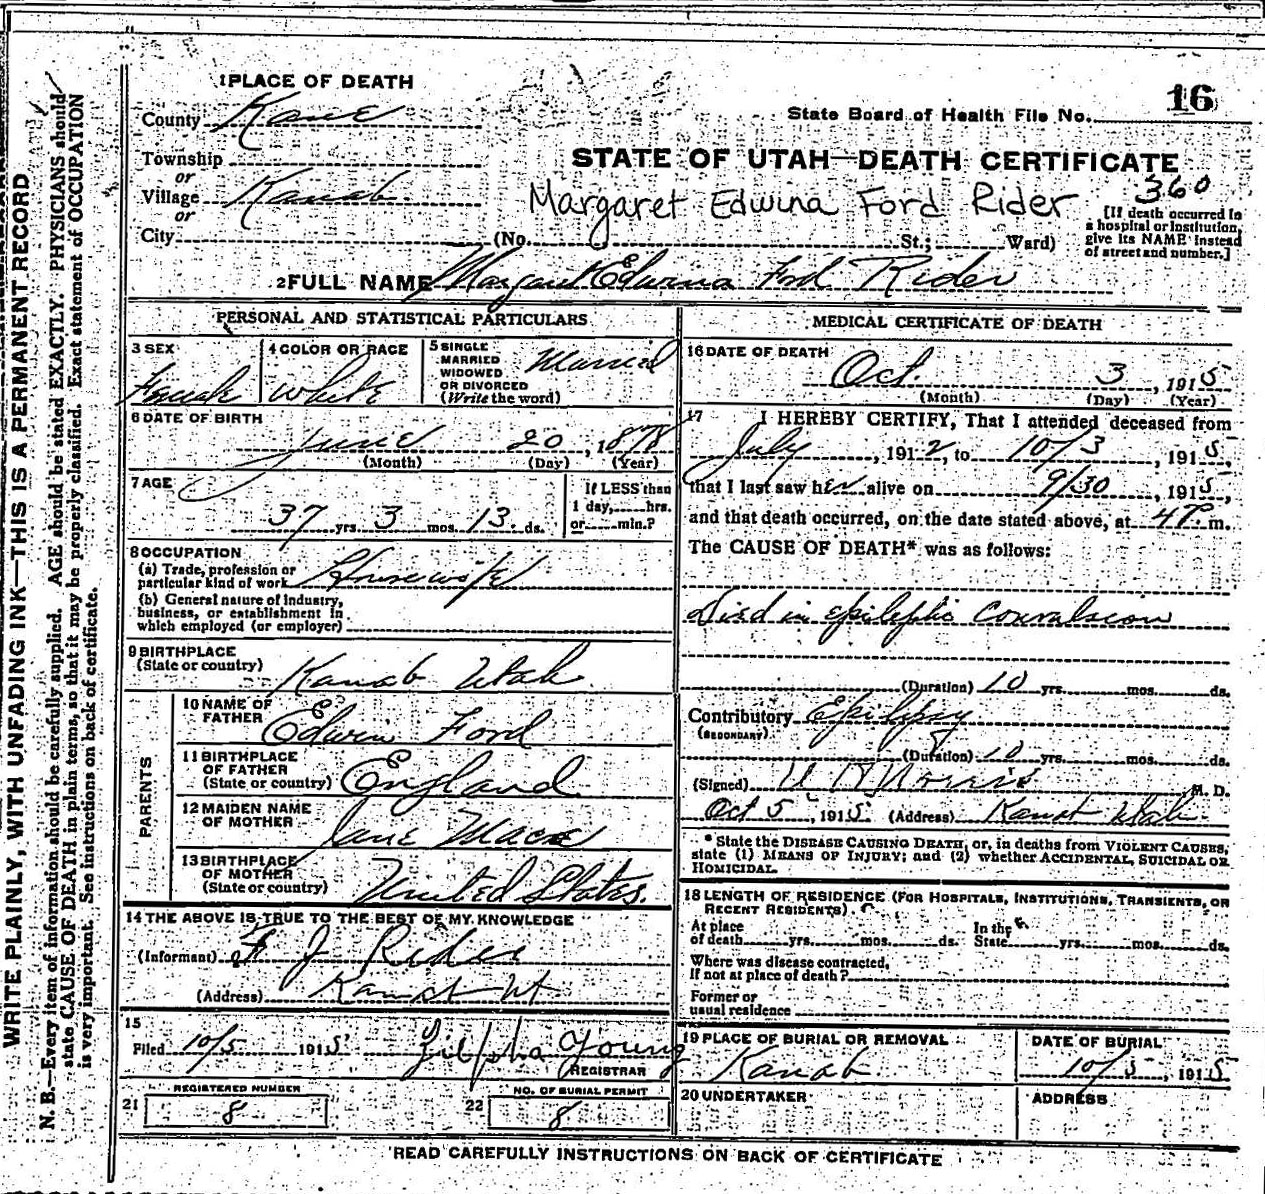 WRITE PLAINLY, WITH UNFADING INK—THIS IS A PERMANENT RECORD
N. B.—Every item of information should be carefully supplied. AGE should be stated EXACTLY. PHYSICIANS should
state CAUSE OF DEATH in plain terms, so that it may be properly classified. Exact statement of OCCUPATION
is very important. See instructions on back of certificate.
1 PLACE OF DEATH
County Kane
Township
or
Village Kanab
or
City (No. St.; Ward)
State Board of Health File No. 16
STATE OF UTAH—DEATH CERTIFICATE
Margaret Edwina Ford Rider 360
[If death occurred in
a hospital or institution,
give its NAME instead
of street and number.]
2 FULL NAME Margaret Edwina Ford Rider
PERSONAL AND STATISTICAL PARTICULARS
3 SEX Female
4 COLOR OR RACE White
5 SINGLE
MARRIED
WIDOWED
OR DIVORCED
(Write the word) Married
6 DATE OF BIRTH
June 20, 1878
(Month) (Day) (Year)
7 AGE
37 yrs. 3 mos. 13 ds.
If LESS than
1 day, hrs.
or min.?
8 OCCUPATION
(a) Trade, profession or
particular kind of work Housewife
(b) General nature of industry,
business, or establishment in
which employed (or employer)
9 BIRTHPLACE
(State or country) Kanab Utah
PARENTS
10 NAME OF
FATHER Edwin Ford
11 BIRTHPLACE
OF FATHER
(State or country) England
12 MAIDEN NAME
OF MOTHER Jane Mace
13 BIRTHPLACE
OF MOTHER
(State or country) United States.
14 THE ABOVE IS TRUE TO THE BEST OF MY KNOWLEDGE
(Informant) J Rider
(Address) Kanab Ut
15
Filed 10/5 1915 Zilpha Young
REGISTRAR
REGISTERED NUMBER
21 8
NO. OF BURIAL PERMIT
22 8
MEDICAL CERTIFICATE OF DEATH
16 DATE OF DEATH
Oct. 3, 1915
(Month) (Day) (Year)
17 I HEREBY CERTIFY, That I attended deceased from
July, 1912, to 10/3, 1915,
that I last saw her alive on 9/30, 1915,
and that death occurred, on the date stated above, at 4 P. m.
The CAUSE OF DEATH* was as follows:
Died in epileptic convalscion
(Duration) 10 yrs. mos. ds.
Contributory Epilipsy
(SECONDARY)
(Duration) 10 yrs. mos. ds.
(Signed) Norris M. D.
Oct 5, 1915 (Address) Kanab Utah
* State the DISEASE CAUSING DEATH, or, in deaths from VIOLENT CAUSES,
state (1) MEANS OF INJURY; and (2) whether ACCIDENTAL, SUICIDAL OR
HOMICIDAL.
18 LENGTH OF RESIDENCE (FOR HOSPITALS, INSTITUTIONS, TRANSIENTS, OR
RECENT RESIDENTS).
At place
of death yrs. mos. ds.
In the
State yrs. mos. ds.
Where was disease contracted,
If not at place of death?
Former or
usual residence
19 PLACE OF BURIAL OR REMOVAL
Kanab
DATE OF BURIAL
10/5, 1915
20 UNDERTAKER
ADDRESS
READ CAREFULLY INSTRUCTIONS ON BACK OF CERTIFICATE